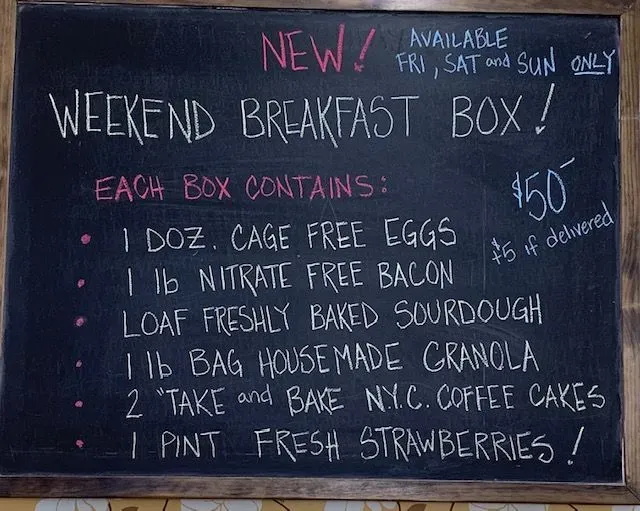 NEW!
AVAILABLE
FRI, SAT and SUN ONLY
WEEKEND BREAKFAST BOX!
EACH BOX CONTAINS:
$50-
+$5 if delivered
• 1 DOZ. CAGE FREE EGGS
• 1 lb NITRATE FREE BACON
• LOAF FRESHLY BAKED SOURDOUGH
• 1 lb BAG HOUSEMADE GRANOLA
• 2 "TAKE and BAKE N.Y.C. COFFEE CAKES
• 1 PINT FRESH STRAWBERRIES!